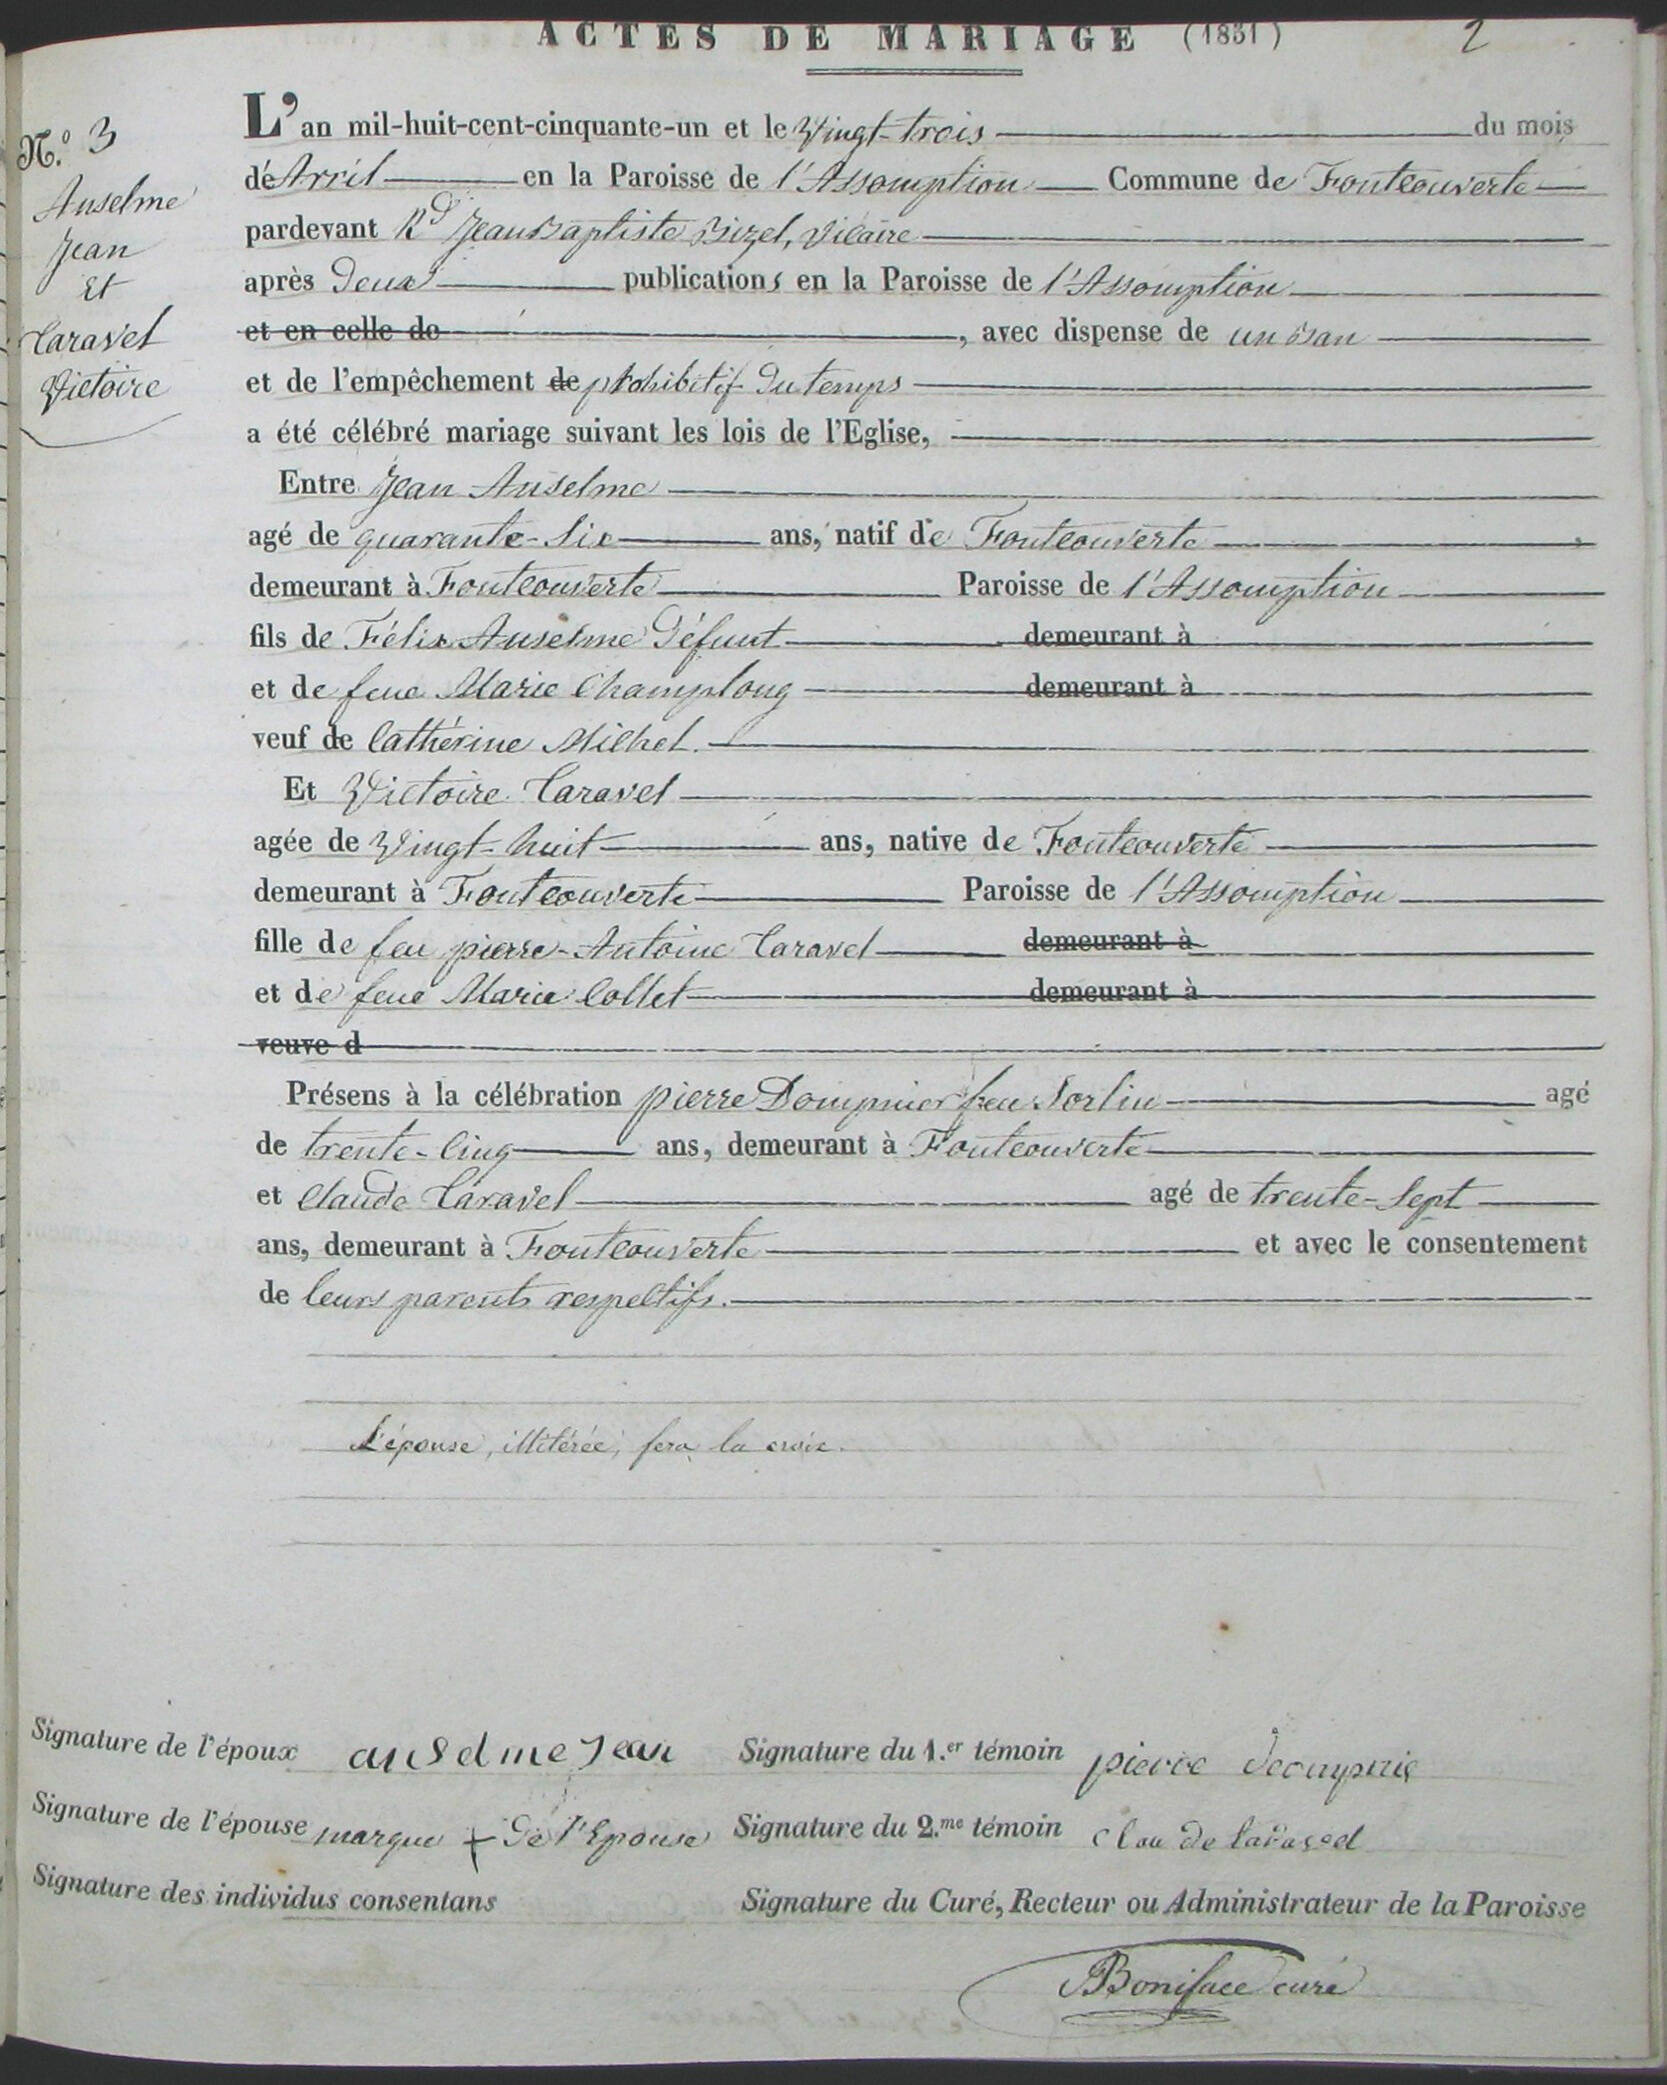 ACTES DE MARIAGE (1851) 2
N.º 3
Anselme
Jean
Et
Caravel
Victoire
L'an mil-huit-cent-cinquante-un et le Vingt-trois du mois
de Avril en la Paroisse de l'Assomption Commune de Fontcouverte
pardevant Rd Jean Baptiste Bizel, Vicaire
après Deux publications en la Paroisse de l'Assomption
et en celle de , avec dispense de un Ban
et de l'empêchement de prohibitif Du temps
a été célébré mariage suivant les lois de l'Eglise,
Entre Jean Anselme
agé de quarante-Six ans, natif de Fontcouverte
demeurant à Fontcouverte Paroisse de l'Assomption
fils de Félix Anselme Défunt demeurant à
et de feue Marie Champlong demeurant à
veuf de Cathérine Michel.
Et Victoire Caravel
agée de Vingt-huit ans, native de Fontcouverte
demeurant à Fontcouverte Paroisse de l'Assomption
fille de feu pierre-Antoine Caravel demeurant à
et de feue Marie Collet demeurant à
veuve d
Présens à la célébration pierre Dompnier feu Sorlin agé
de trente-Cinq ans, demeurant à Fontcouverte
et Claude Caravel agé de trente-Sept
ans, demeurant à Fontcouverte et avec le consentement
de leurs parents respectifs.
L'épouse, illitérée, fera la croix.
Signature de l'époux anselme Jean Signature du 1.er témoin pierre dompnie
Signature de l'épouse marque + De l'Epouse Signature du 2.me témoin clau de caravel
Signature des individus consentans Signature du Curé, Recteur ou Administrateur de la Paroisse
Boniface curé